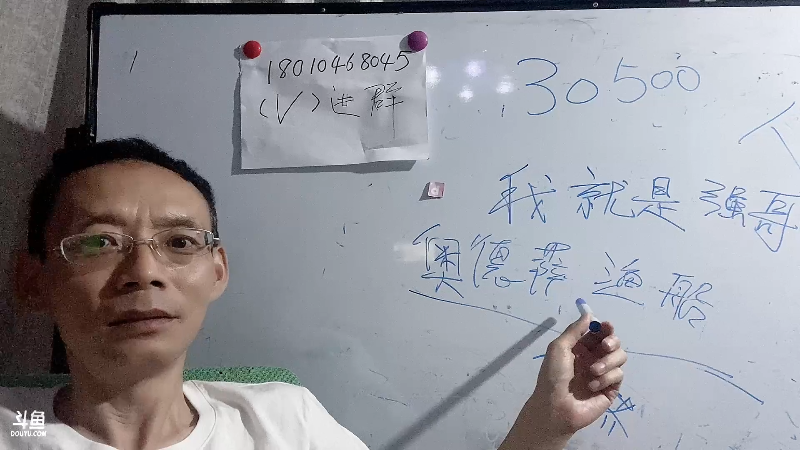 18010468045
(V)进群
30500
人
我就是强哥
奥德萨渔船
斗鱼
DOUYU.COM